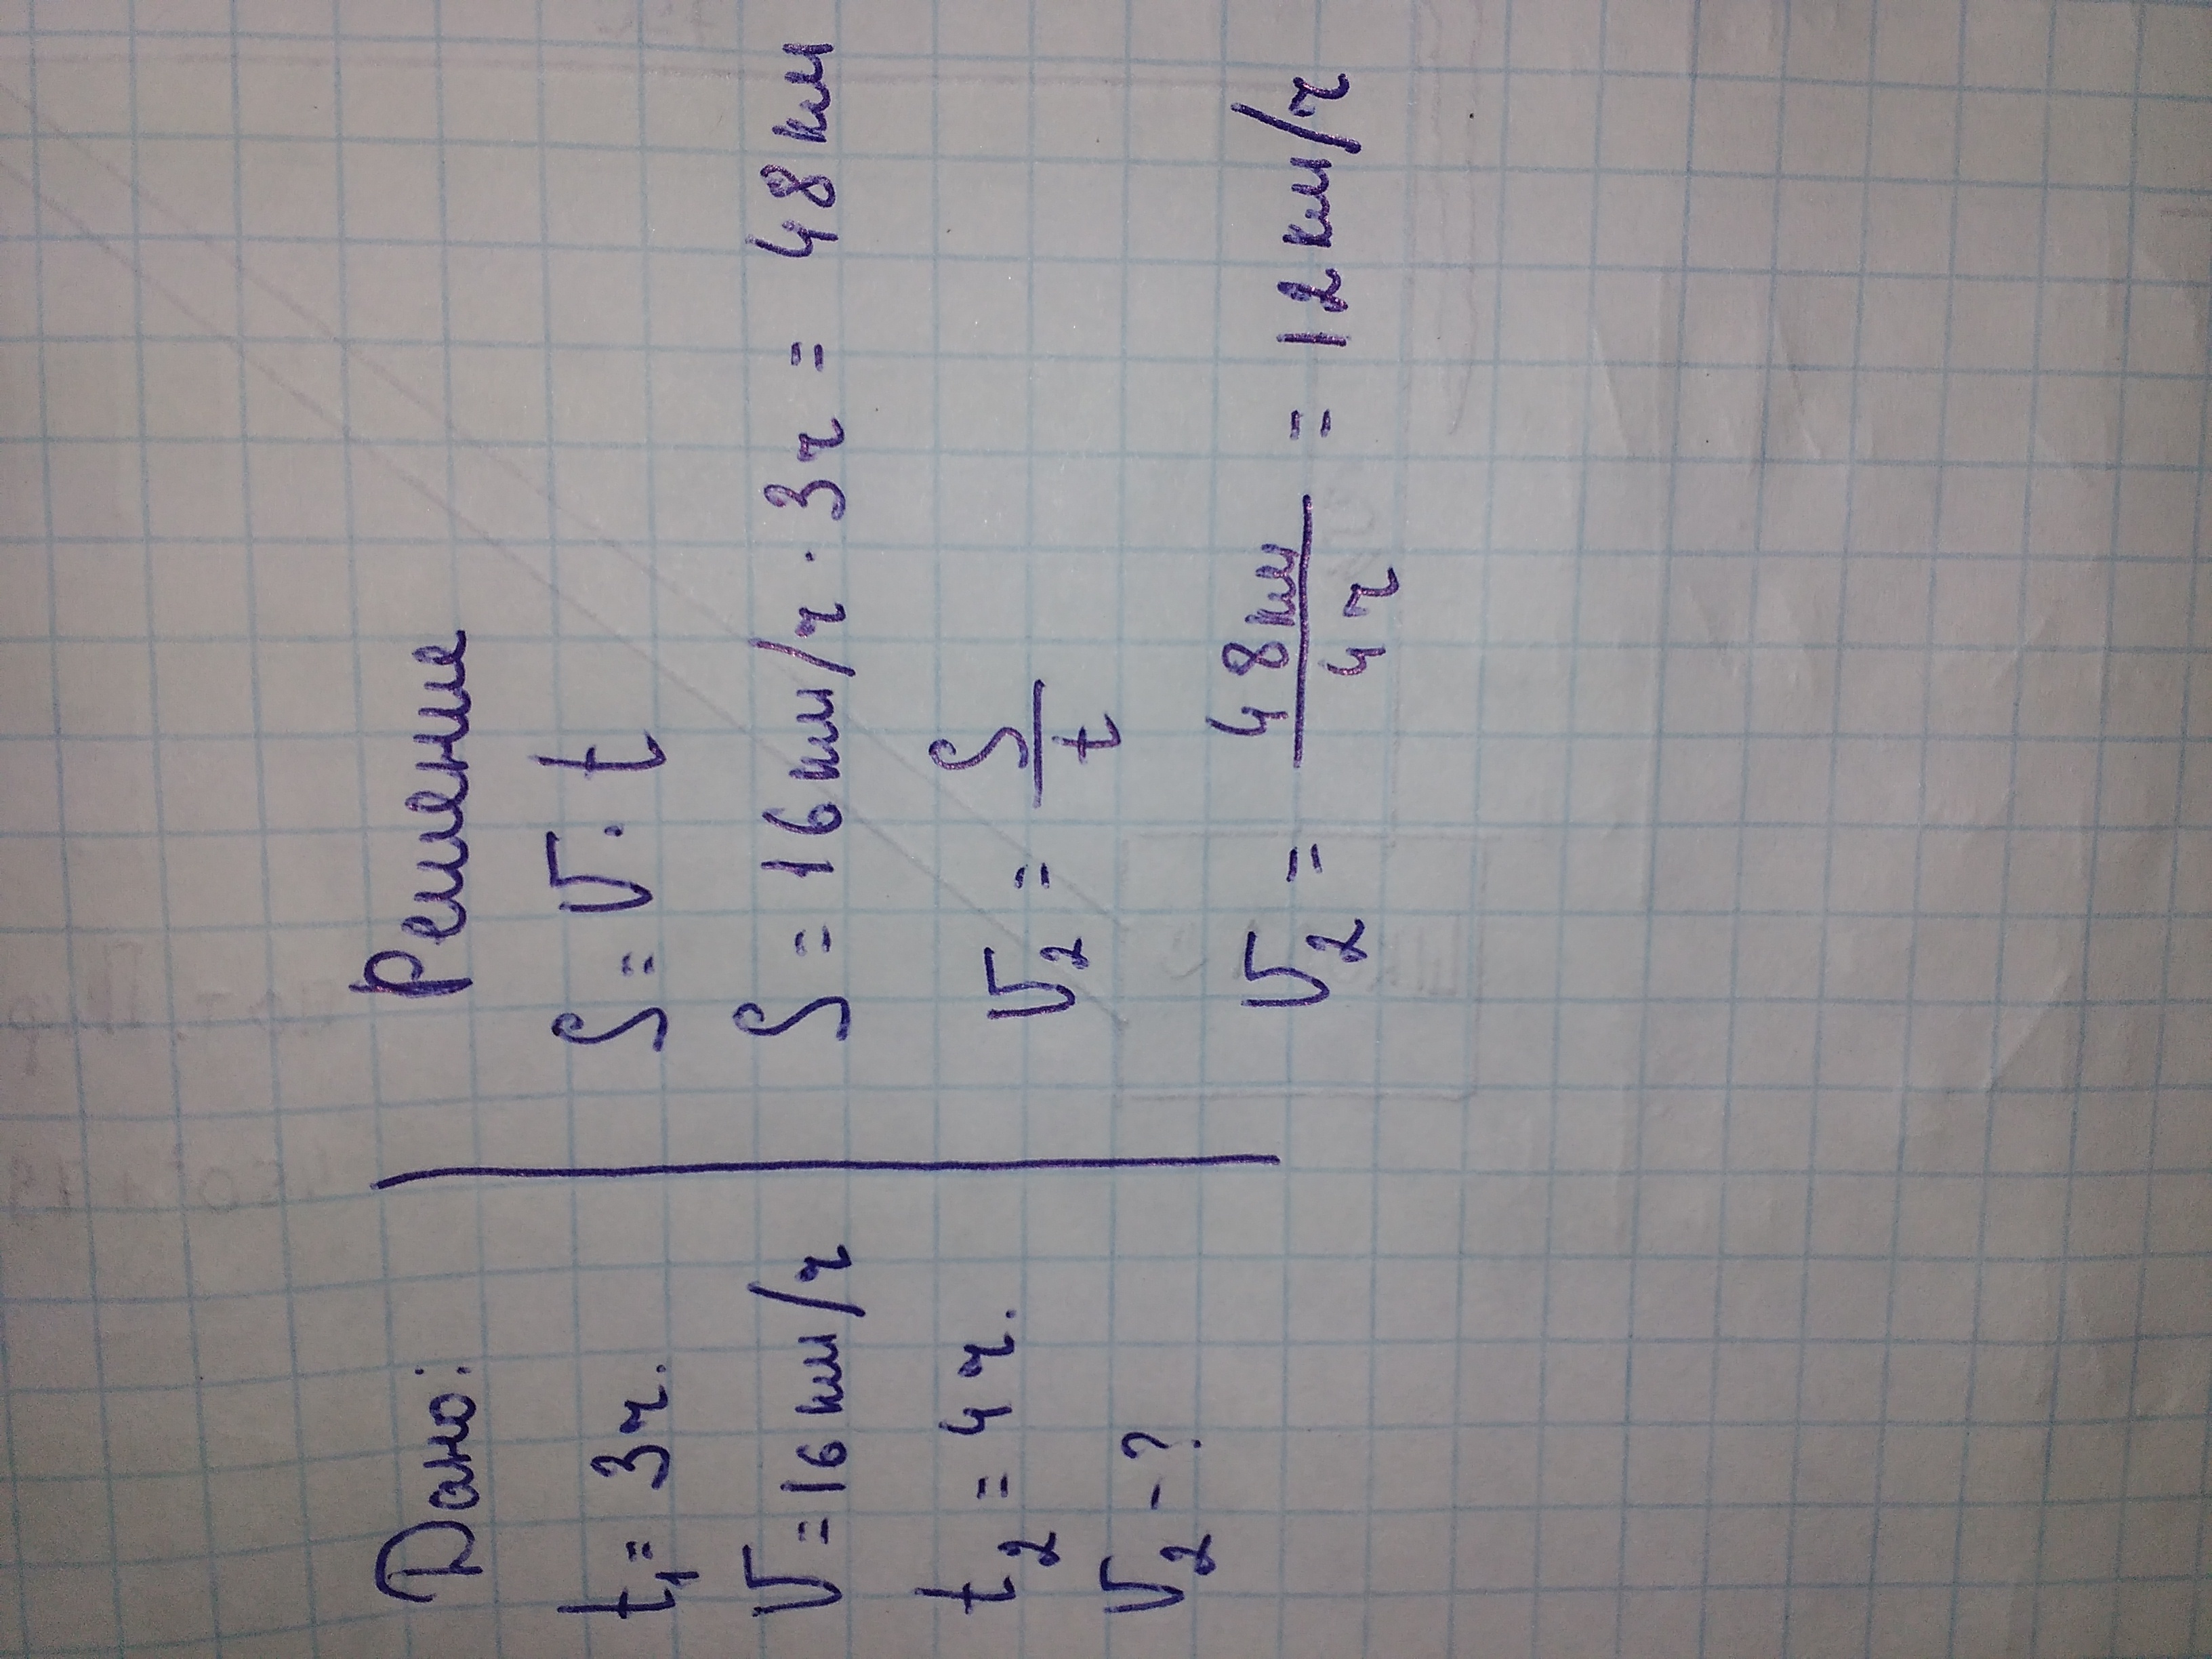 Дано:
t₁ = 3ч.
V = 16 км/ч
t₂ = 4ч.
V₂ - ?
Решение
S = V · t
S = 16 км/ч · 3ч = 48 км
V₂ = S/t
V₂ = 48км/4ч = 12 км/ч